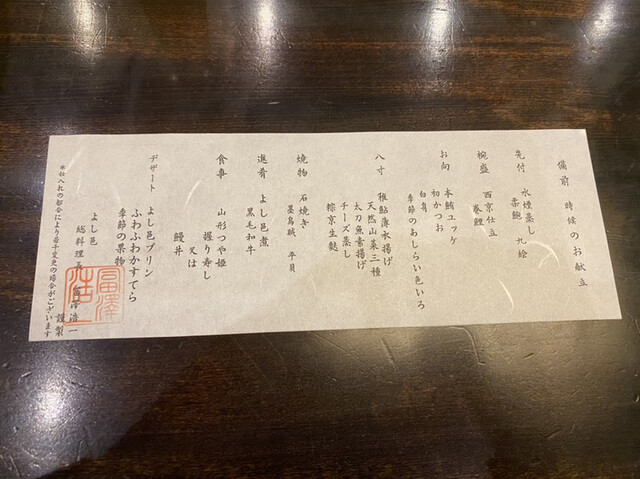 備前 時候のお献立
先付 水煙蒸し
柔鮑 九絵
椀盛 西京仕立
巻鯉
お向 本鮪ユッケ
初かつお
白身
季節のあしらい色いろ
八寸 稚鮎薄氷揚げ
天然山菜三種
太刀魚素揚げ
チーズ蒸し
粽京生麩
焼物 石焼き
墨烏賊 平貝
進肴 よし邑煮
黒毛和牛
食事 山形つや姫
握り寿し
又は
鰻丼
デザート よし邑プリン
ふわふわかすてら
季節の果物
よし邑
総料理長 冨澤浩一
謹製
※仕入れの都合により若干変更の場合がございます